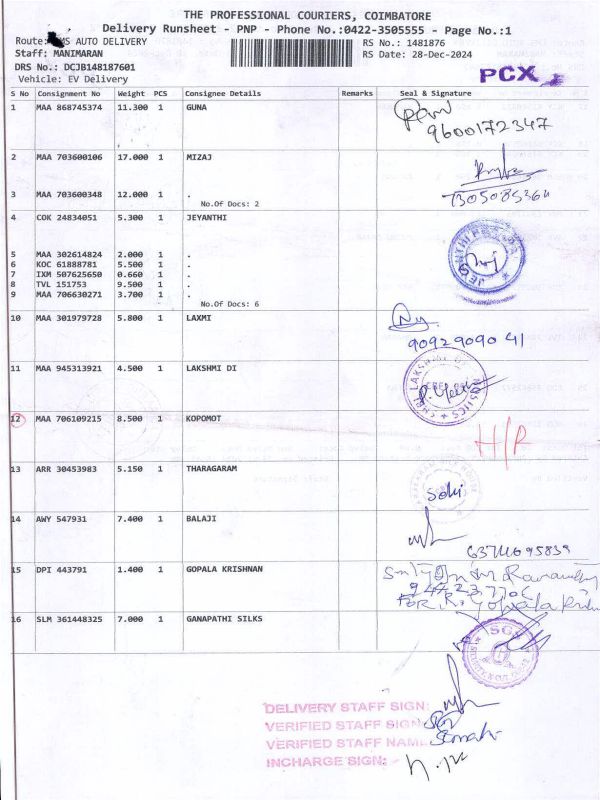 THE PROFESSIONAL COURIERS, COIMBATORE
Delivery Runsheet - PNP - Phone No.:0422-3505555 - Page No.:1
Route: AUTO DELIVERY
RS No.: 1481876
Staff: MANIMARAN
RS Date: 28-Dec-2024
DRS No.: DCJB148187601
Vehicle: EV Delivery
PCX
S No Consignment No Weight PCS Consignee Details Remarks Seal & Signature
1 MAA 868745374 11.300 1 GUNA
9600172347
2 MAA 703600106 17.000 1 MIZAJ
3 MAA 703600348 12.000 1 .
7305085364
No.Of Docs: 2
4 COK 24834051 5.300 1 JEYANTHI
5 MAA 302614824 2.000 1 .
6 KOC 61888781 5.500 1 .
7 IXM 507625650 0.660 1 .
8 TVL 151753 9.500 1 .
9 MAA 706630271 3.700 1 .
No.Of Docs: 6
10 MAA 301979728 5.800 1 LAXMI
9092909041
11 MAA 945313921 4.500 1 LAKSHMI DI
12 MAA 706109215 8.500 1 KOPOMOT
H/R
13 ARR 30453983 5.150 1 THARAGARAM
14 AWY 547931 7.400 1 BALAJI
15 DPI 443791 1.400 1 GOPALA KRISHNAN
16 SLM 361448325 7.000 1 GANAPATHI SILKS
SGS
DELIVERY STAFF SIGN:
VERIFIED STAFF SIGN
VERIFIED STAFF NAME
INCHARGE SIGN: